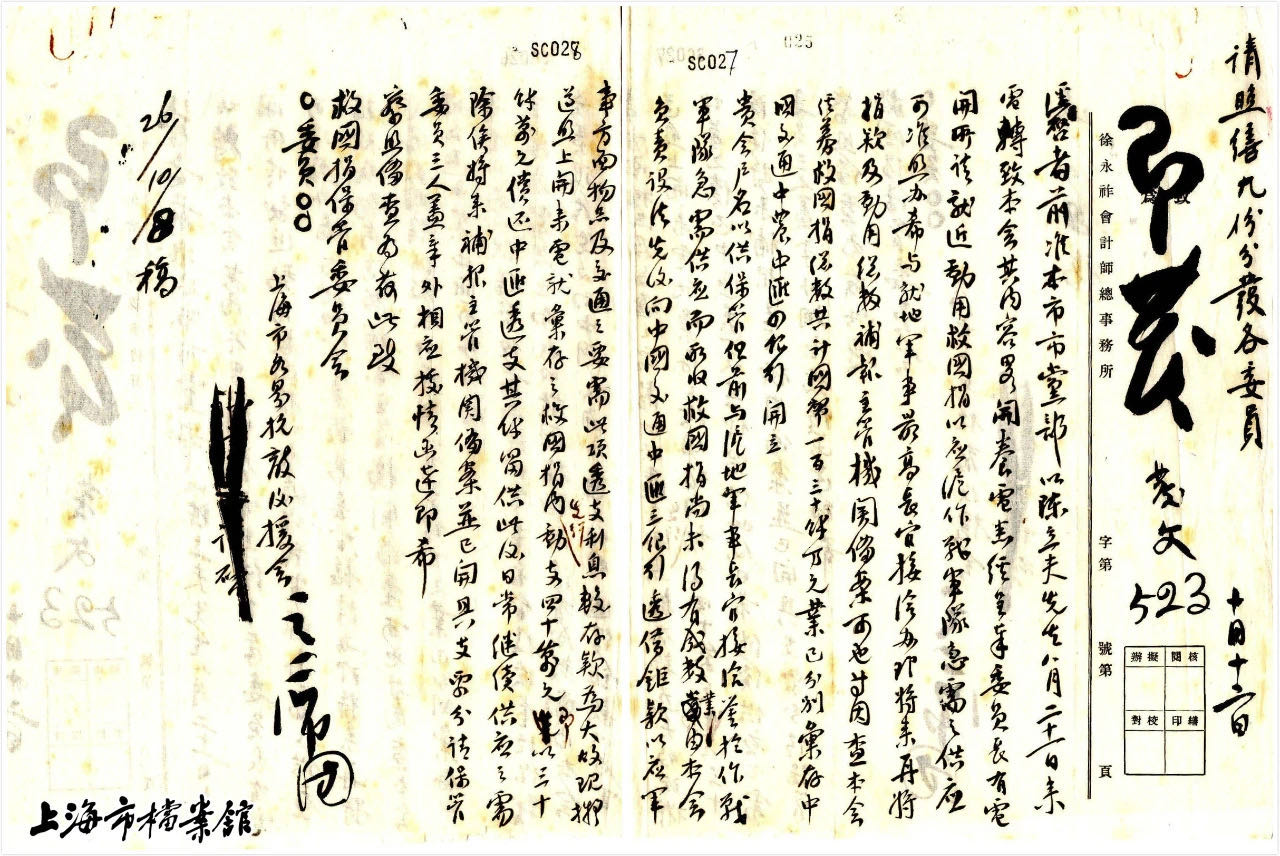 請照繕九份分發各委員
即發
發文
523
十月十二日
徐永祚會計師總事務所
字第 號第 頁
核閱
擬辦
繕印
校對
逕啓者前准本市市黨部以陳立夫先生八月二十一日來
電轉致本會其內容畧開養電悉經呈奉委員長有電
開所請就近動用救國捐以應滬作戰軍隊急需之供應
可准照办希与就地軍事最高長官接洽办理將來再將
指款及動用總數補報主管機關備案可也等因查本會
經募救國捐總數共計國幣一百三十餘万元業已分別彙存中
國交通中農中匯四銀行開立
貴会户名以供保管但前与滬地軍事長官接洽並於作戰
軍隊急需供應而所收救國捐尚未得有成數業由本会
負責設法先後向中國交通中匯三銀行透借鉅款以應軍
事方面物品及交通之要需此項透支利息較存款為大故現擬
遵照上開來電就彙存之救國捐內動支四十萬元即以三十
餘萬元償還中匯透支其餘留供此後日常继续供应之需
除俟將來補报主管機関俻案並已開具支票分請保管
委員三人盖章外相應據情函達即希
察照俻查为荷此致
救國捐保管委員会
○委員○○
上海市各界抗敵後援会
26/10/8 稿
SC028
SC027
025
上海市檔案館